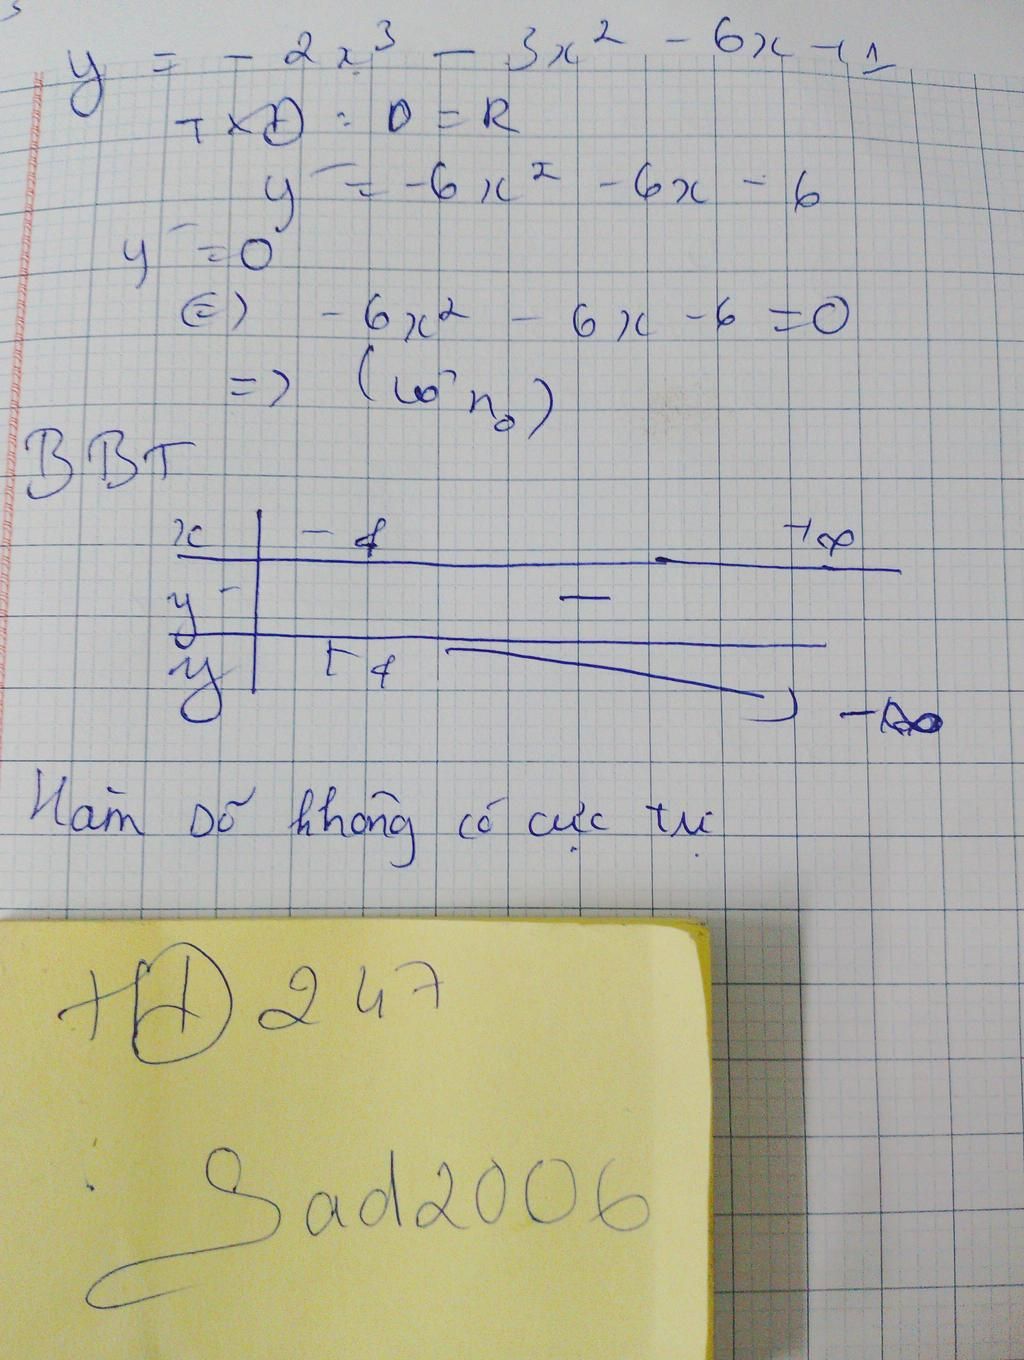 y = - 2x³ - 3x² - 6x + 1
TXĐ : D = R
y' = -6x² - 6x - 6
y' = 0
<=> -6x² - 6x - 6 = 0
=> (vô n₀)
BBT
x -∞ +∞
y' -
y +∞ -∞
Hàm số không có cực trị
HĐ247
Sad2006